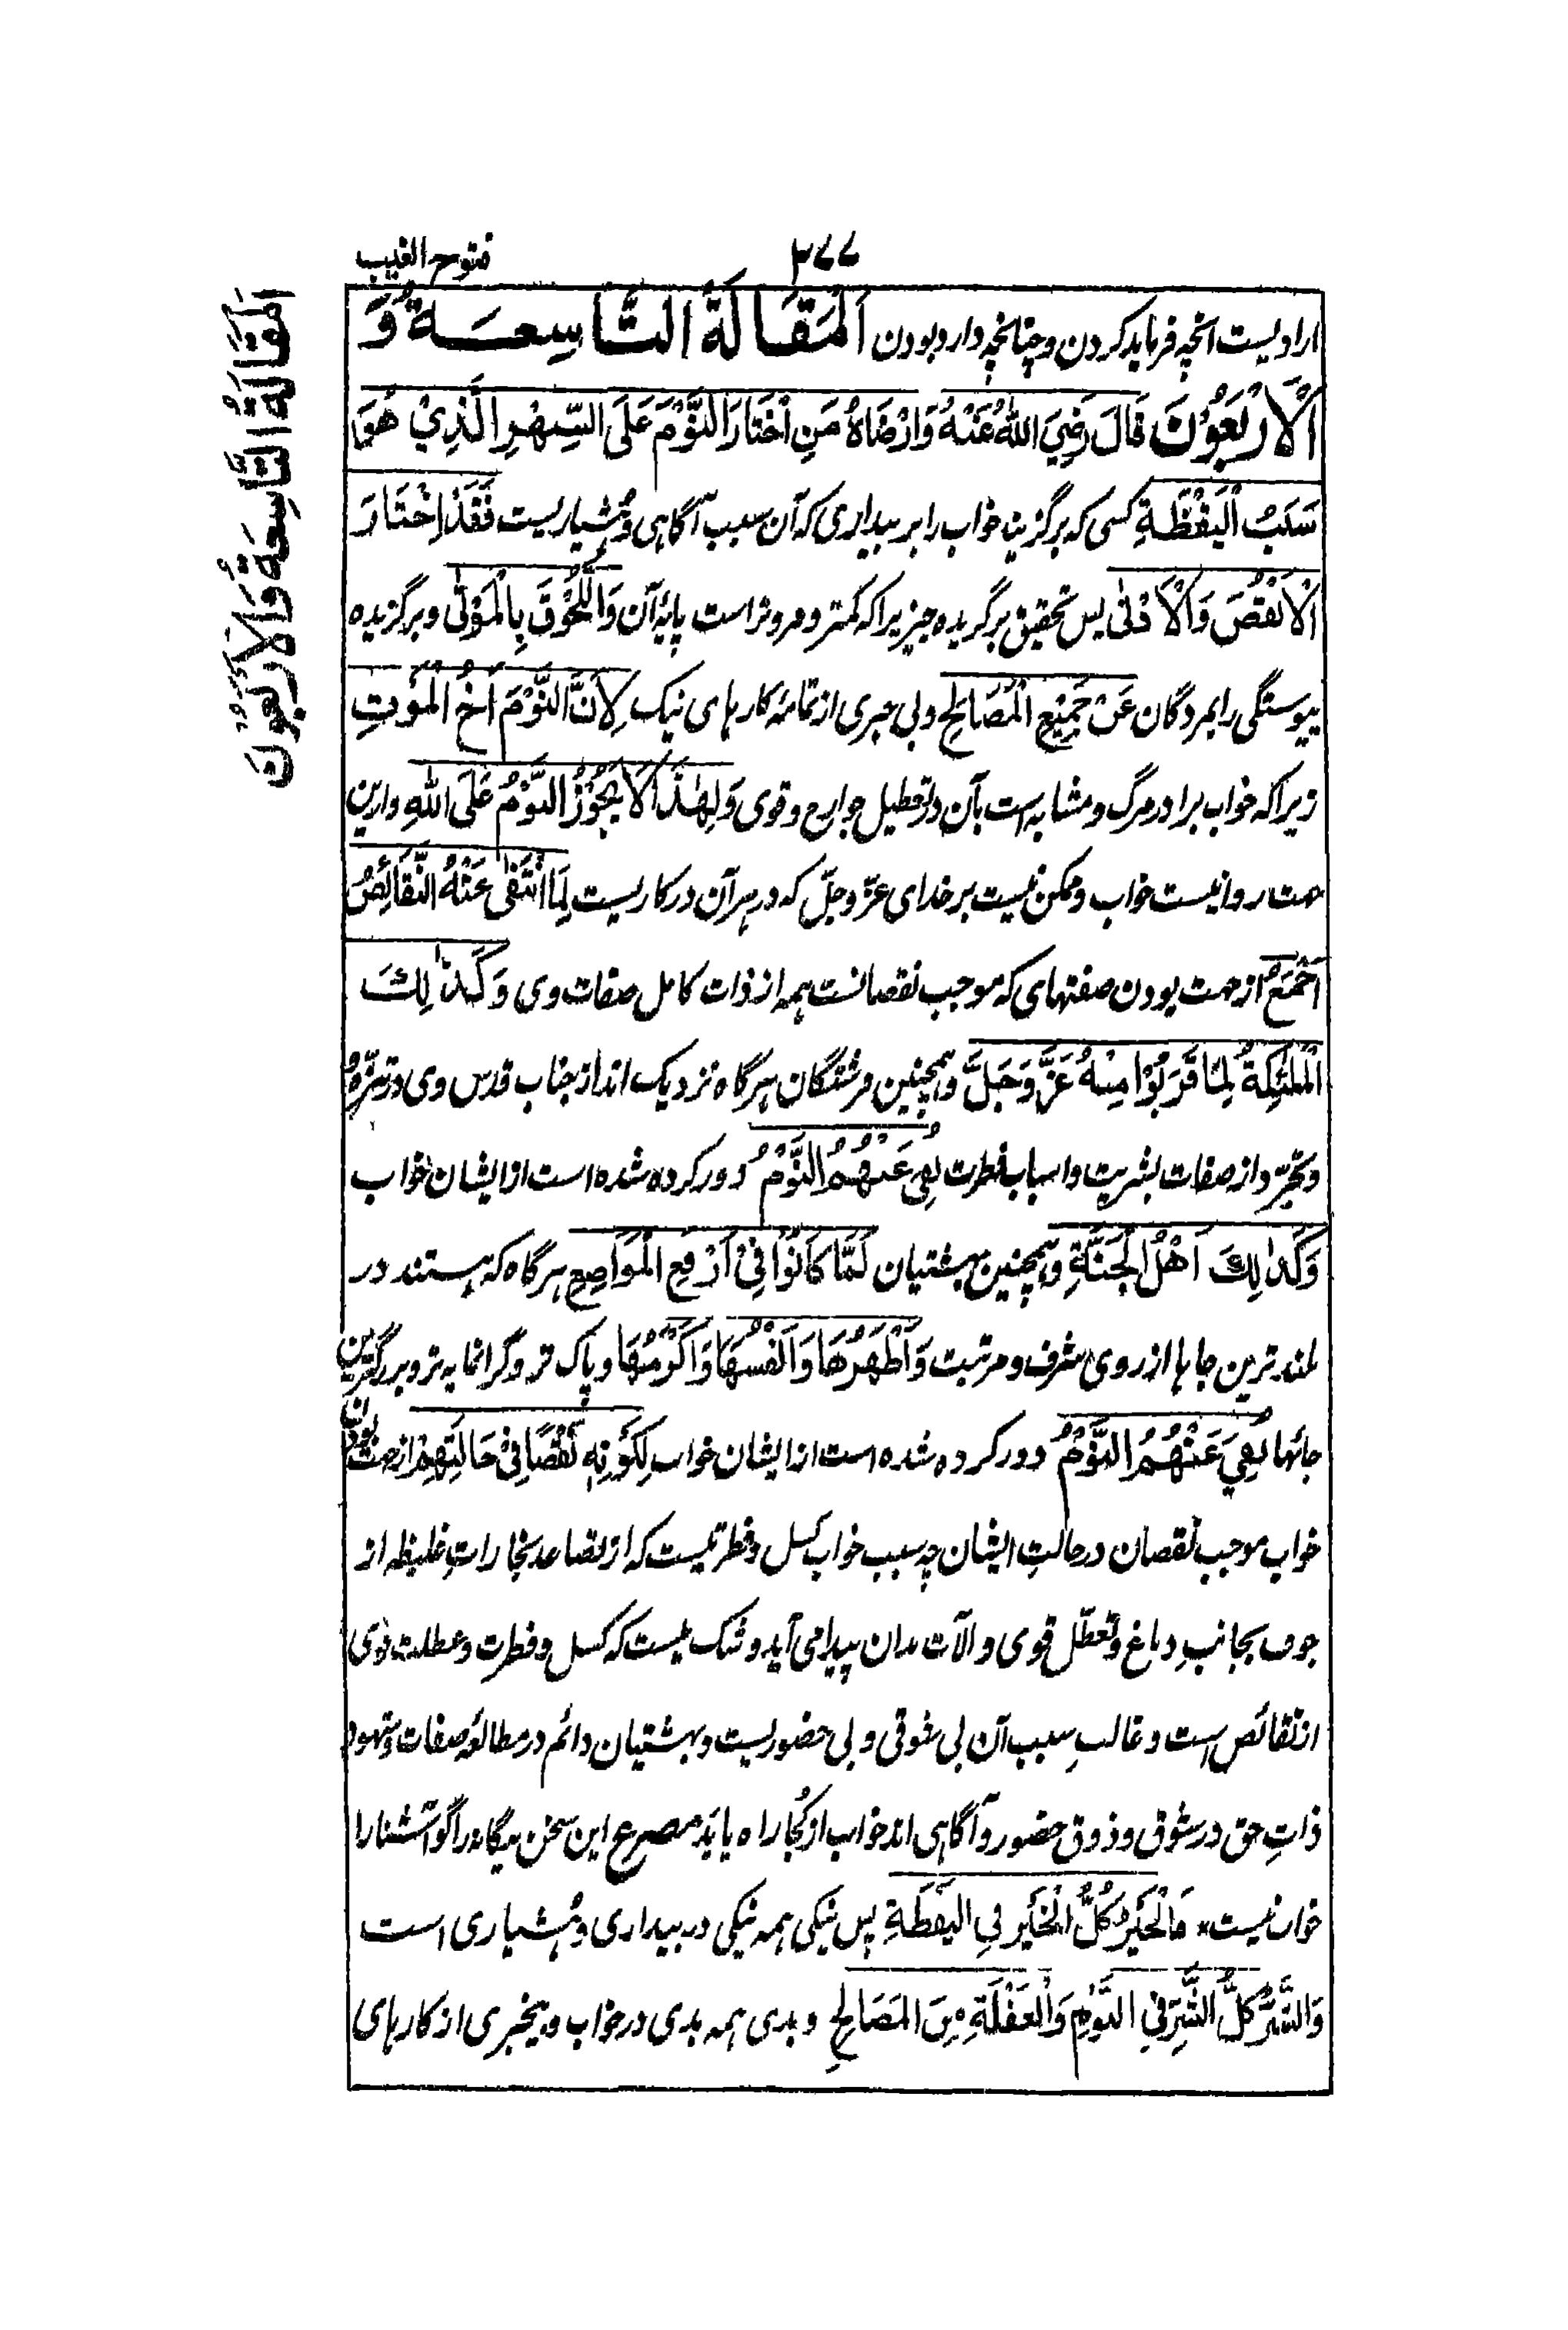 فتوح الغیب
۳۷۷
المقالة التاسعة والاربعون
ارادیست آنچه فرماید کردن و چنانچه دارد بودن اَلْمَقَالَةُ التَّاسِعَةُ وَ
الْاَرْبَعُوْنَ قَالَ رَضِيَ اللهُ عَنْهُ وَاَرْضَاهُ مَنِ اخْتَارَ النَّوْمَ عَلَى السَّهَرِ الَّذِيْ هُوَ
سَبَبُ الْيَقْظَةِ کسی که برگزیند خواب را بر بیداری که آن سبب آگاهی و هشیاریست فَقَدْ اِخْتَارَ
الْاَنْقَصَ وَالْاَدْنٰى پس تحقیق برگزیده چیزیرا که کمتر و فروتر است پایهٔ آن وَاللُّحُوْقَ بِالْمَوْتٰى و برگزیده
پیوستگی را بمردگان عَنْ جَمِيْعِ الْمَصَالِحِ و بی خبری از تمامه کارهای نیک لِاَنَّ النَّوْمَ اَخُ الْمَوْتِ
زیرا که خواب برادر مرگ و مشابه است بآن در تعطیل جوارح و قوی وَلِهٰذَا لَا يَجُوْزُ النَّوْمُ عَلَى اللهِ و ازین
جهت روا نیست خواب و ممکن نیست بر خدای عزّ و جلّ که در هر آن در کاریست لِمَا انْتَفٰى عَنْهُ النَّقَائِصُ
اَجْمَعُ از جهت بودن صفتهای که موجب نقصانست همه از ذات کامل صفات وی وَكَذٰلِكَ
الْمَلٰئِكَةُ لِمَا قَرَبُوْا مِنْهُ عَزَّ وَجَلَّ و همچنین فرشتگان هرگاه نزدیک اند از جناب قدس وی در تنزّه
و تجرّد از صفات بشریت و اسباب فطرت نُفِيَ عَنْهُمُ النَّوْمُ دور کرده شده است از ایشان خواب
وَكَذٰلِكَ اَهْلُ الْجَنَّةِ و همچنین بهشتیان لَمَّا كَانُوْا فِيْ اَرْفَعِ الْمَوَاضِعِ هرگاه که هستند در
بلند ترین جاها از روی شرف و مرتبت وَاَطْهَرِهَا وَاَنْفَسِهَا وَاَكْرَمِهَا و پاک تر و گرانمایه تر و بزرگترین
جائها نُفِيَ عَنْهُمُ النَّوْمُ دور کرده شده است از ایشان خواب لِكَوْنِهٖ نَقْصًا فِيْ حَالَتِهِمْ از جهت بودن
خواب موجب نقصان در حالتِ ایشان چه سبب خواب کسل و فطرتیست که از تصاعد بخاراتِ غلیظه از
جوف بجانبِ دماغ و تعطّل قوی و آلات بدان پیدا می آید و شک نیست که کسل و فطرت و عطلت قوی
از نقائص است و غالبِ سبب آن بی شوقی و بی حضوریست و بهشتیان دائم در مطالعهٔ صفات و شهود
ذاتِ حق در شوق و ذوق حضور و آگاهی اند خواب از کجا راه یابد مصرع این سخن بیگانه را گو آشنا را
خواب نیست * فَالْخَيْرُ كُلُّ الْخَيْرِ فِي الْيَقْظَةِ پس نیکی همه نیکی در بیداری و هشیاری است
وَالشَّرُّ كُلُّ الشَّرِّ فِي النَّوْمِ وَالْغَفْلَةِ مِنَ الْمَصَالِحِ و بدی همه بدی در خواب و بیخبری از کارهای